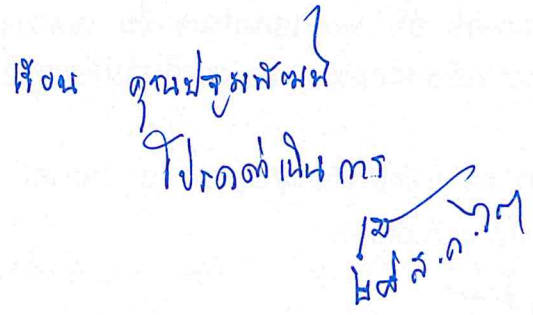 เรียน คุณปฐมพัฒน์
โปรดดำเนินการ
๒๘ ส.ค.